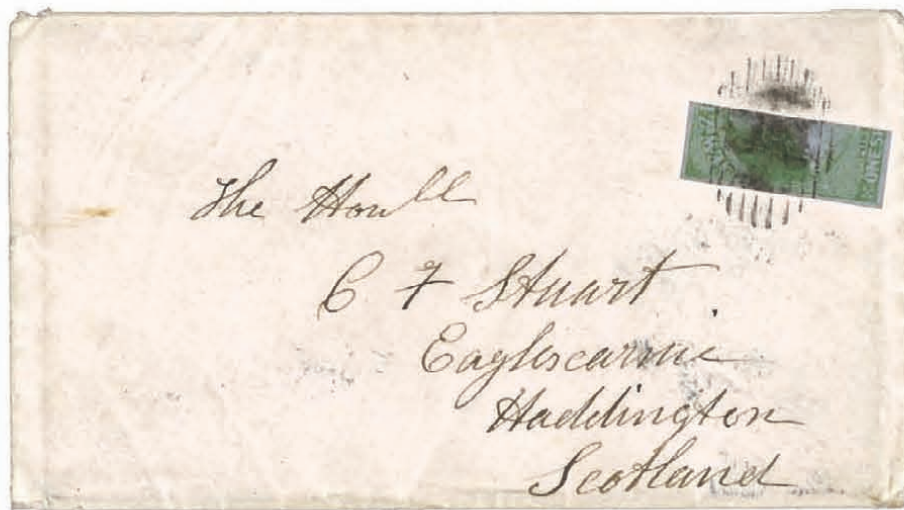 The Honbll
C F Stuart
Eaglescarnie
Haddington
Scotland
ONE S